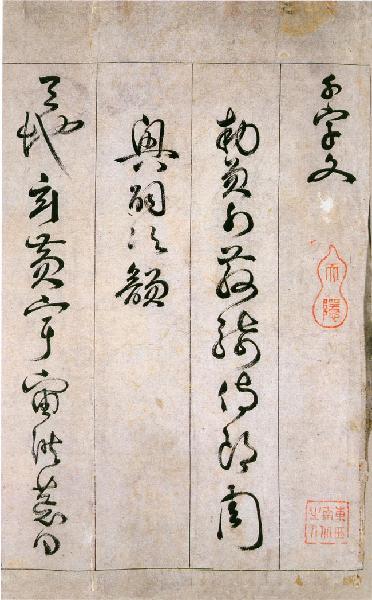 千字文
勅員外散騎侍郎周
興嗣次韻
天地玄黃宇宙洪荒日
東西南北之人